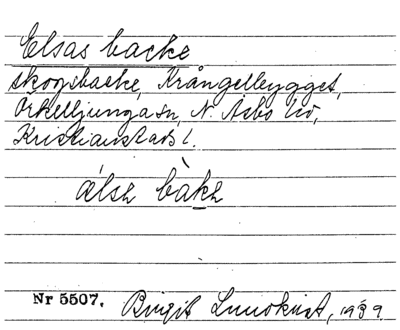 Elsas backe
skogsbacke, Krångelbygget,
Örkelljunga sn, N. Åsbo hd,
Kristianstads l.
ælsə bàkə
Nr 5507. Birgit Lundkvist, 1939.